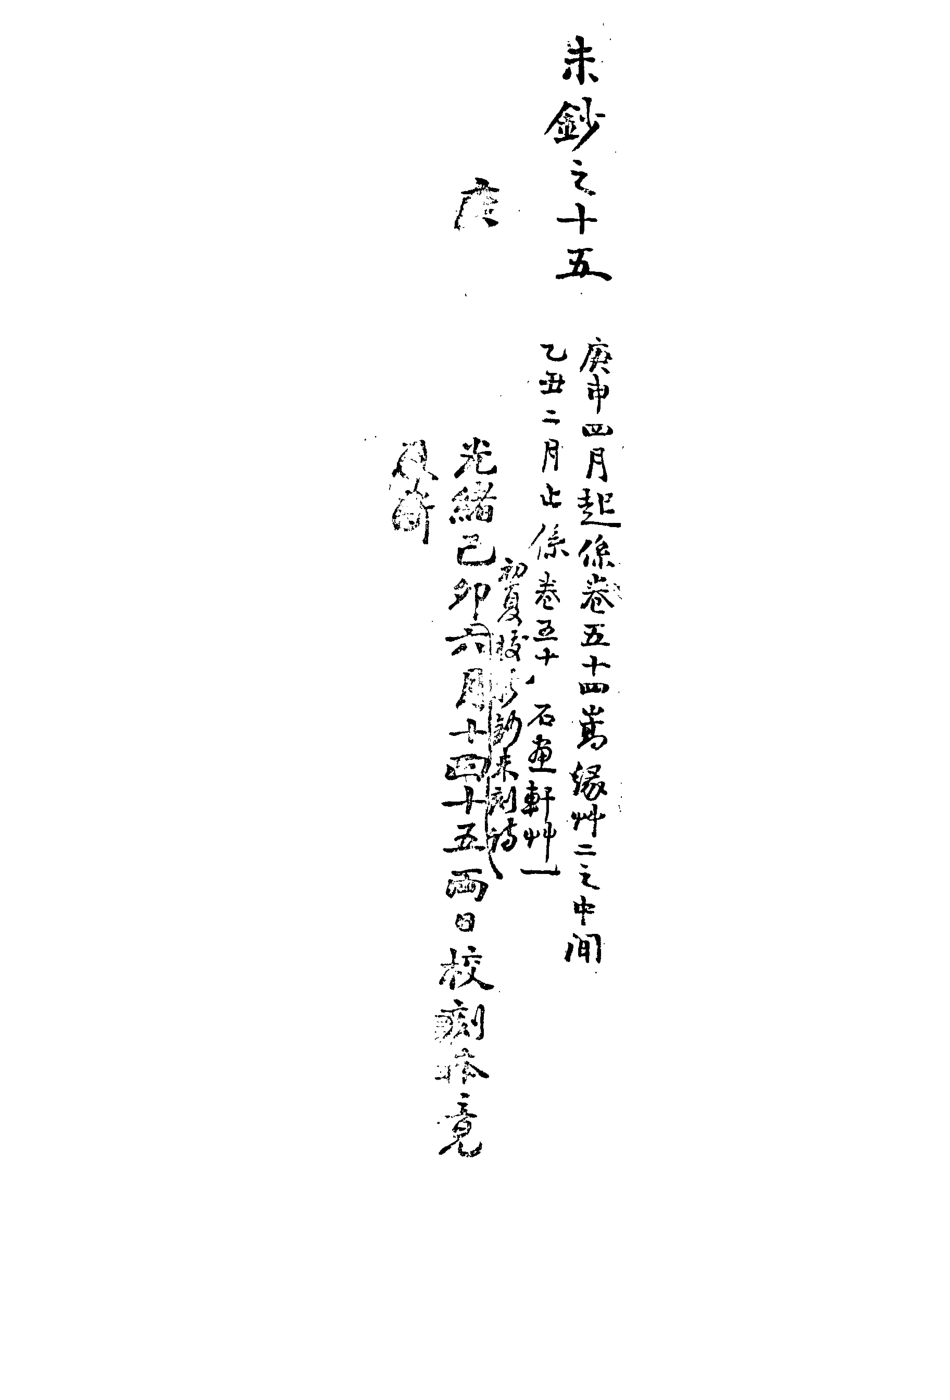 朱鈔之十五
庚申四月起係卷五十四嵩緣艸二之中間
乙丑二月止係卷五十 石畫軒艸一
初夏 鈔未刻詩
光緒己卯六月十四十五兩日校刻本竟